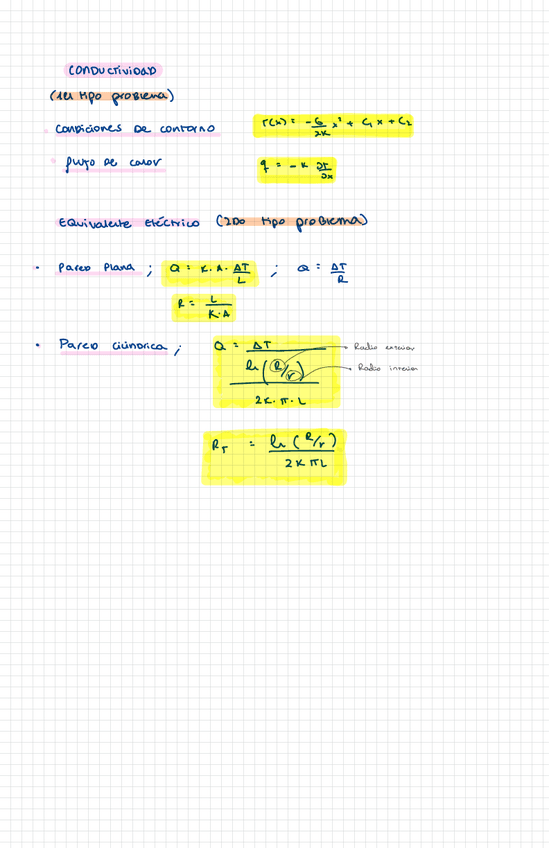 CONDUCTIVIDAD
(1er tipo problema)
· Condiciones de contorno T(x) = -G/2K x² + C₁ x + C₂
· flujo de calor q = -K ∂T/∂x
Equivalente Eléctrico (2DO tipo problema)
· Pared Plana ; Q = K·A·ΔT/L ; Q = ΔT/R
R = L/K·A
· Pared cilíndrica ; Q = ΔT / (ln(R/r) / 2K·π·L)
Radio exterior
Radio interior
R_T = ln(R/r) / 2KπL